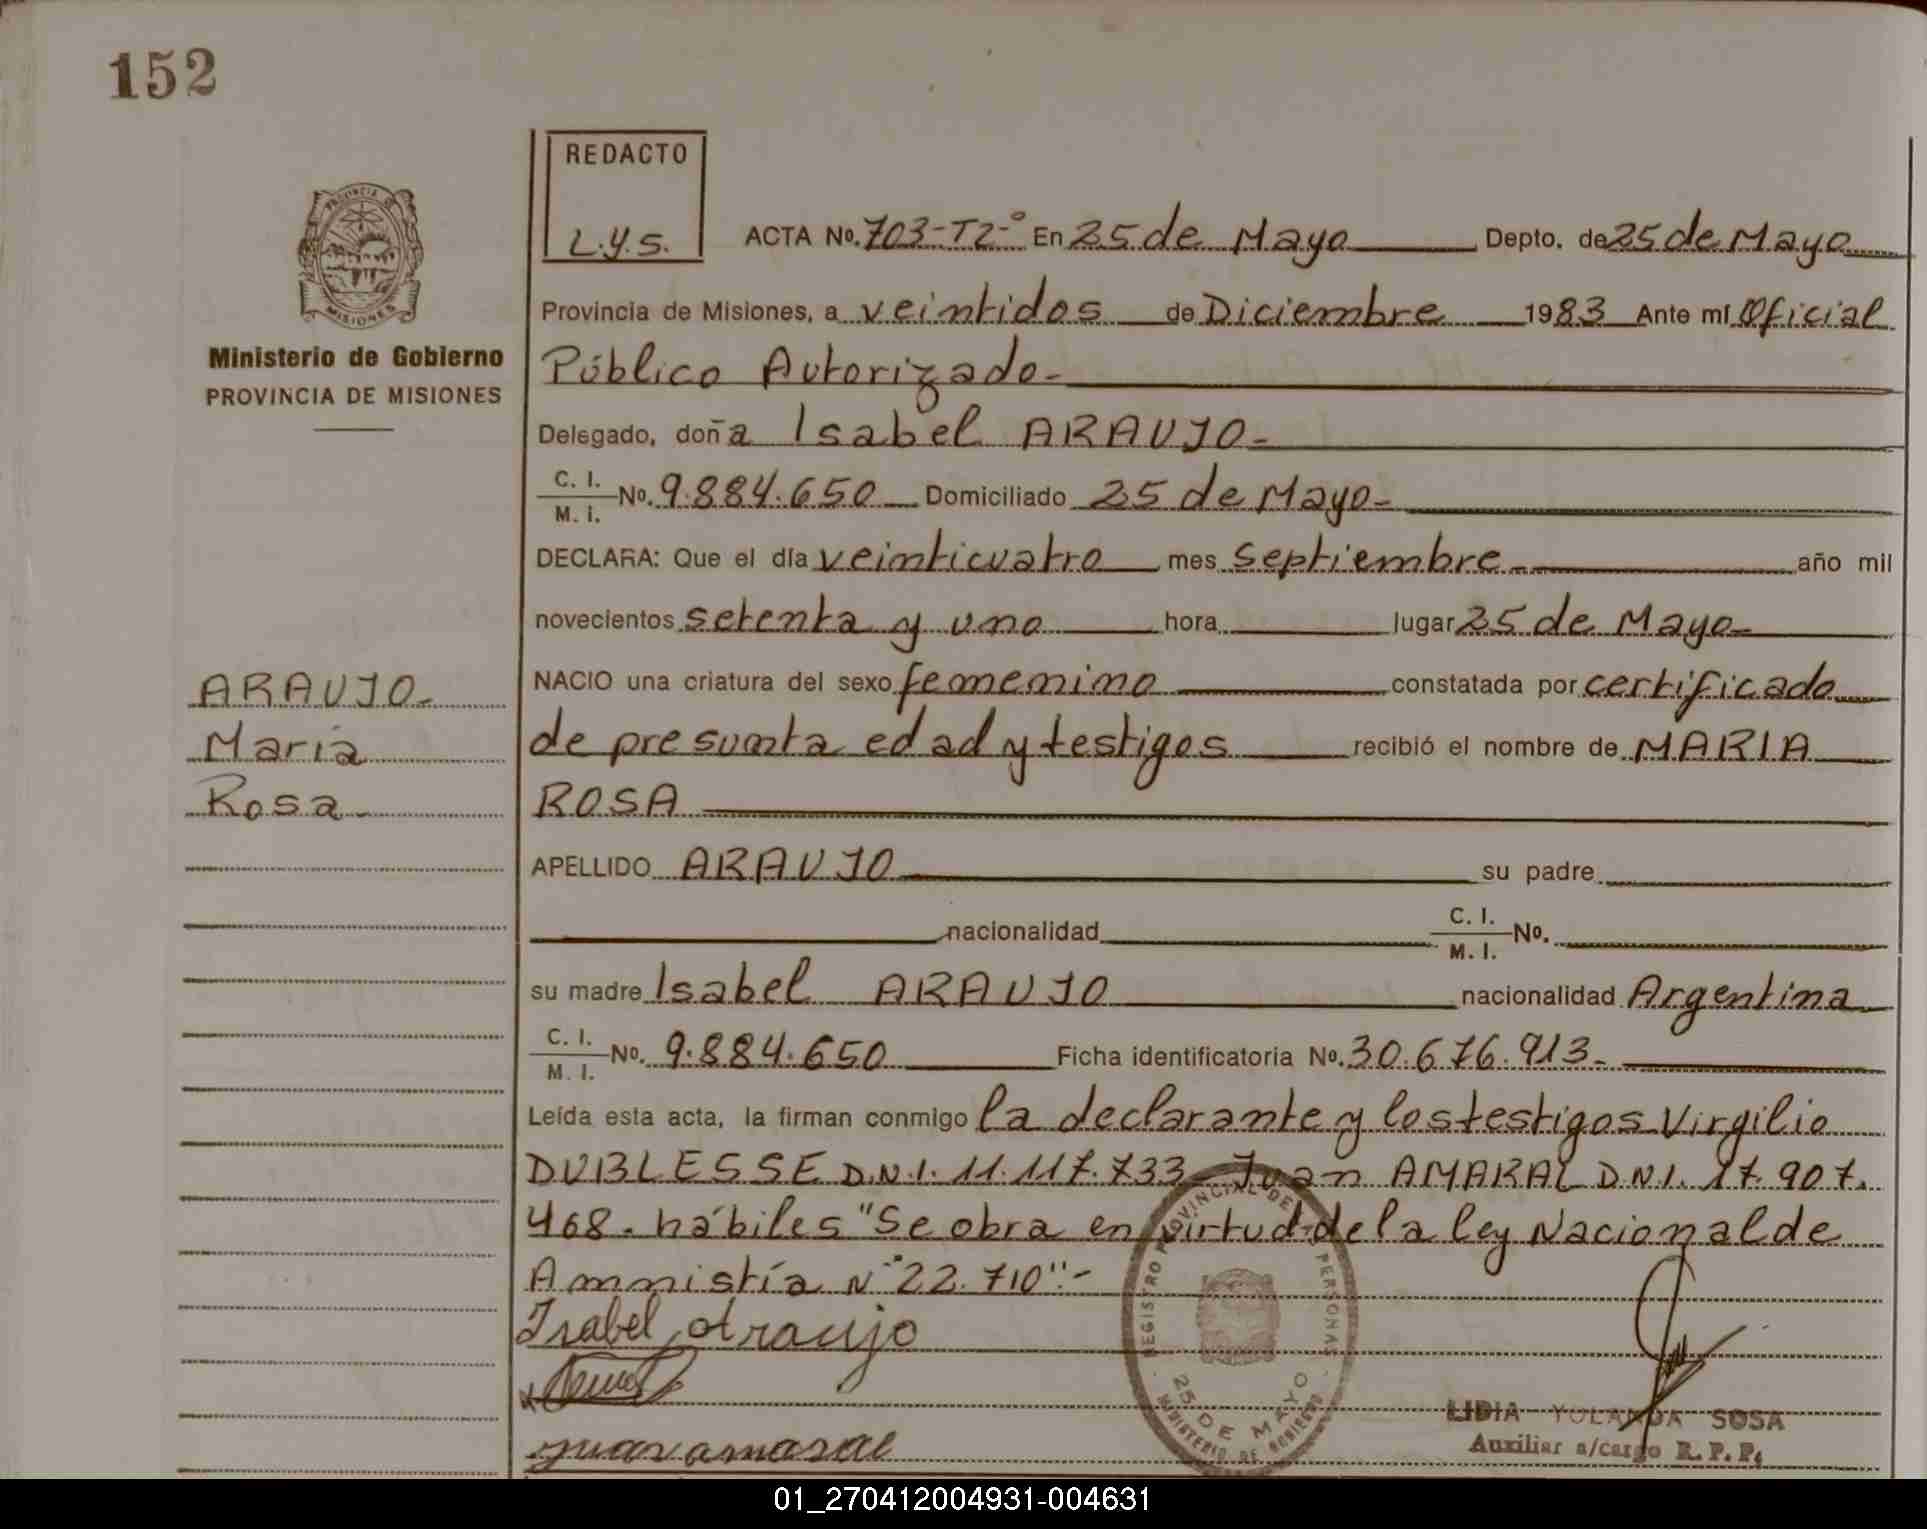 152
REDACTO
L.y.s.
ACTA No. 703-T2-° En 25 de Mayo Depto. de 25 de Mayo
PROVINCIA DE
MISIONES
Provincia de Misiones, a veintidos de Diciembre 1983 Ante mí Oficial
Ministerio de Gobierno
PROVINCIA DE MISIONES
Público Autorizado-
Delegado, doña Isabel ARAUJO-
C. I.
M. i. No. 9.884.650 Domiciliado 25 de Mayo-
DECLARA: Que el día veinticuatro mes septiembre- año mil
novecientos setenta y uno hora lugar 25 de Mayo-
ARAUJO-
María
Rosa-
NACIO una criatura del sexo femenino constatada por certificado
de presunta edad y testigos recibió el nombre de MARIA
ROSA
APELLIDO ARAUJO su padre
nacionalidad C. I.
M. I. No.
su madre Isabel ARAUJO nacionalidad Argentina
C. I.
M. I. No. 9.884.650 Ficha identificatoria No. 30.676.913-
Leída esta acta, la firman conmigo la declarante y los testigos Virgilio
DUBLESSE D.N.I. 11.117.733 Juan AMARAL D.N.I. 17.907.
468- hábiles "Se obra en virtud de la ley Nacional de
Amnistía N° 22.710".-
Isabel Araujo
juan amaral
REGISTRO PROVINCIAL DE PERSONAS
25 DE MAYO
MINISTERIO DE GOBIERNO
LIDIA YOLANDA SOSA
Auxiliar a/cargo R. P. P.
01_270412004931-004631